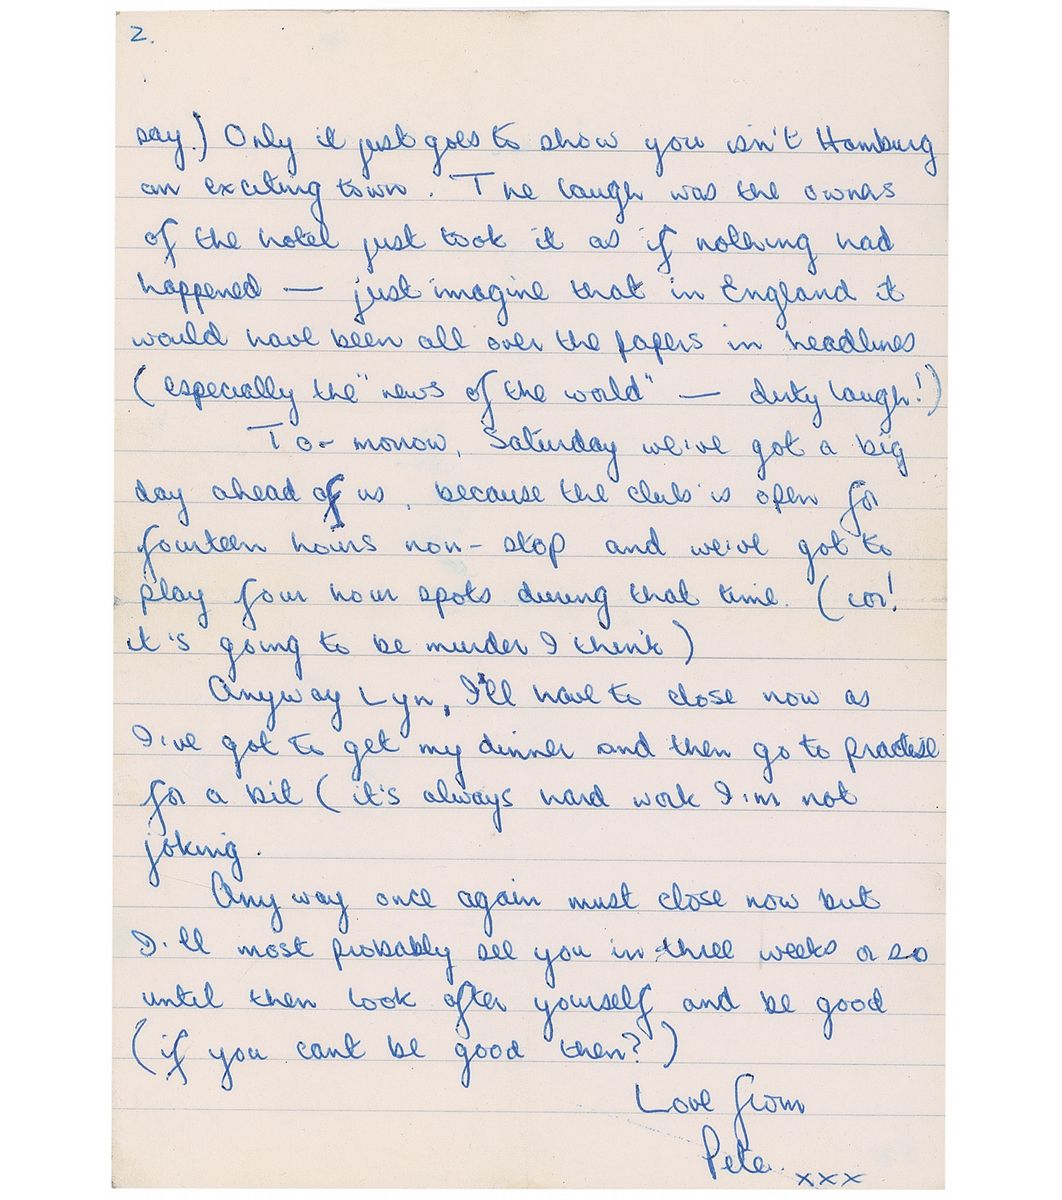 2.
say.) Only it just goes to show you isn't Hamburg
an exciting town. The laugh was the owners
of the hotel just took it as if nothing had
happened — just imagine that in England it
would have been all over the papers in headlines
(especially the "news of the world" — dirty laugh!)
To-morrow, Saturday we've got a big
day ahead of us, because the club is open for
fourteen hours non-stop and we've got to
play four hour spots during that time. (cor!
it's going to be murder I think)
Anyway Lyn, I'll have to close now as
I've got to get my dinner and then go to practise
for a bit (it's always hard work I'm not
joking.
Anyway once again must close now but
I'll most probably see you in three weeks or so
until then look after yourself and be good
(if you cant be good then?)
Love from
Pete. xxx